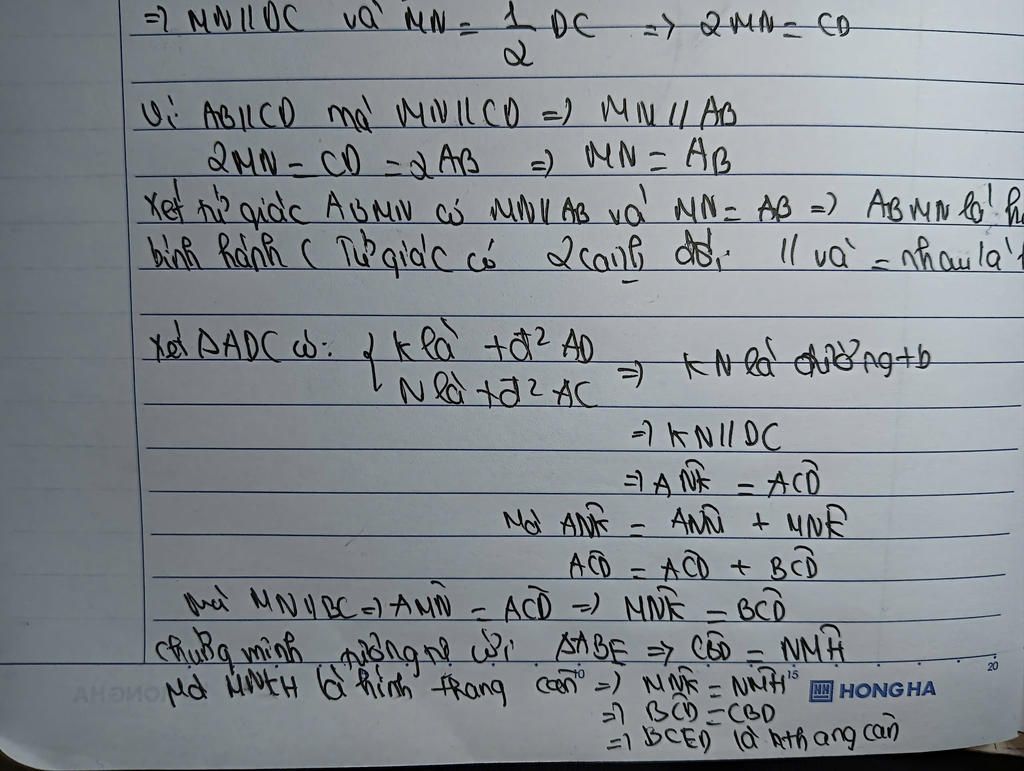 => MN//DC và MN = 1/2 DC => 2MN = CD
Vì AB//CD mà MN//CD => MN // AB
2MN = CD = 2AB => MN = AB
Xét tứ giác ABMN có MN//AB và MN = AB => ABMN là h
bình hành ( Tứ giác có 2 cạnh đối // và = nhau là
Xét ΔADC có: { K là +đ² AD
N là +đ² AC => KN là đường +b
=> KN//DC
=> ANK = ACD
Mà ANK = ANM + MNK
ACD = ACD + BCD
mà MN//BC => AMN = ACD => MNK = BCD
Chứng minh tương tự với ΔABE => CBD = NMH
Mà MNKH là hình thang cân => MNK = NMH
=> BCD = CBD
=> BCED là hthang cân
10 15 20
HONG HA
HONG HA